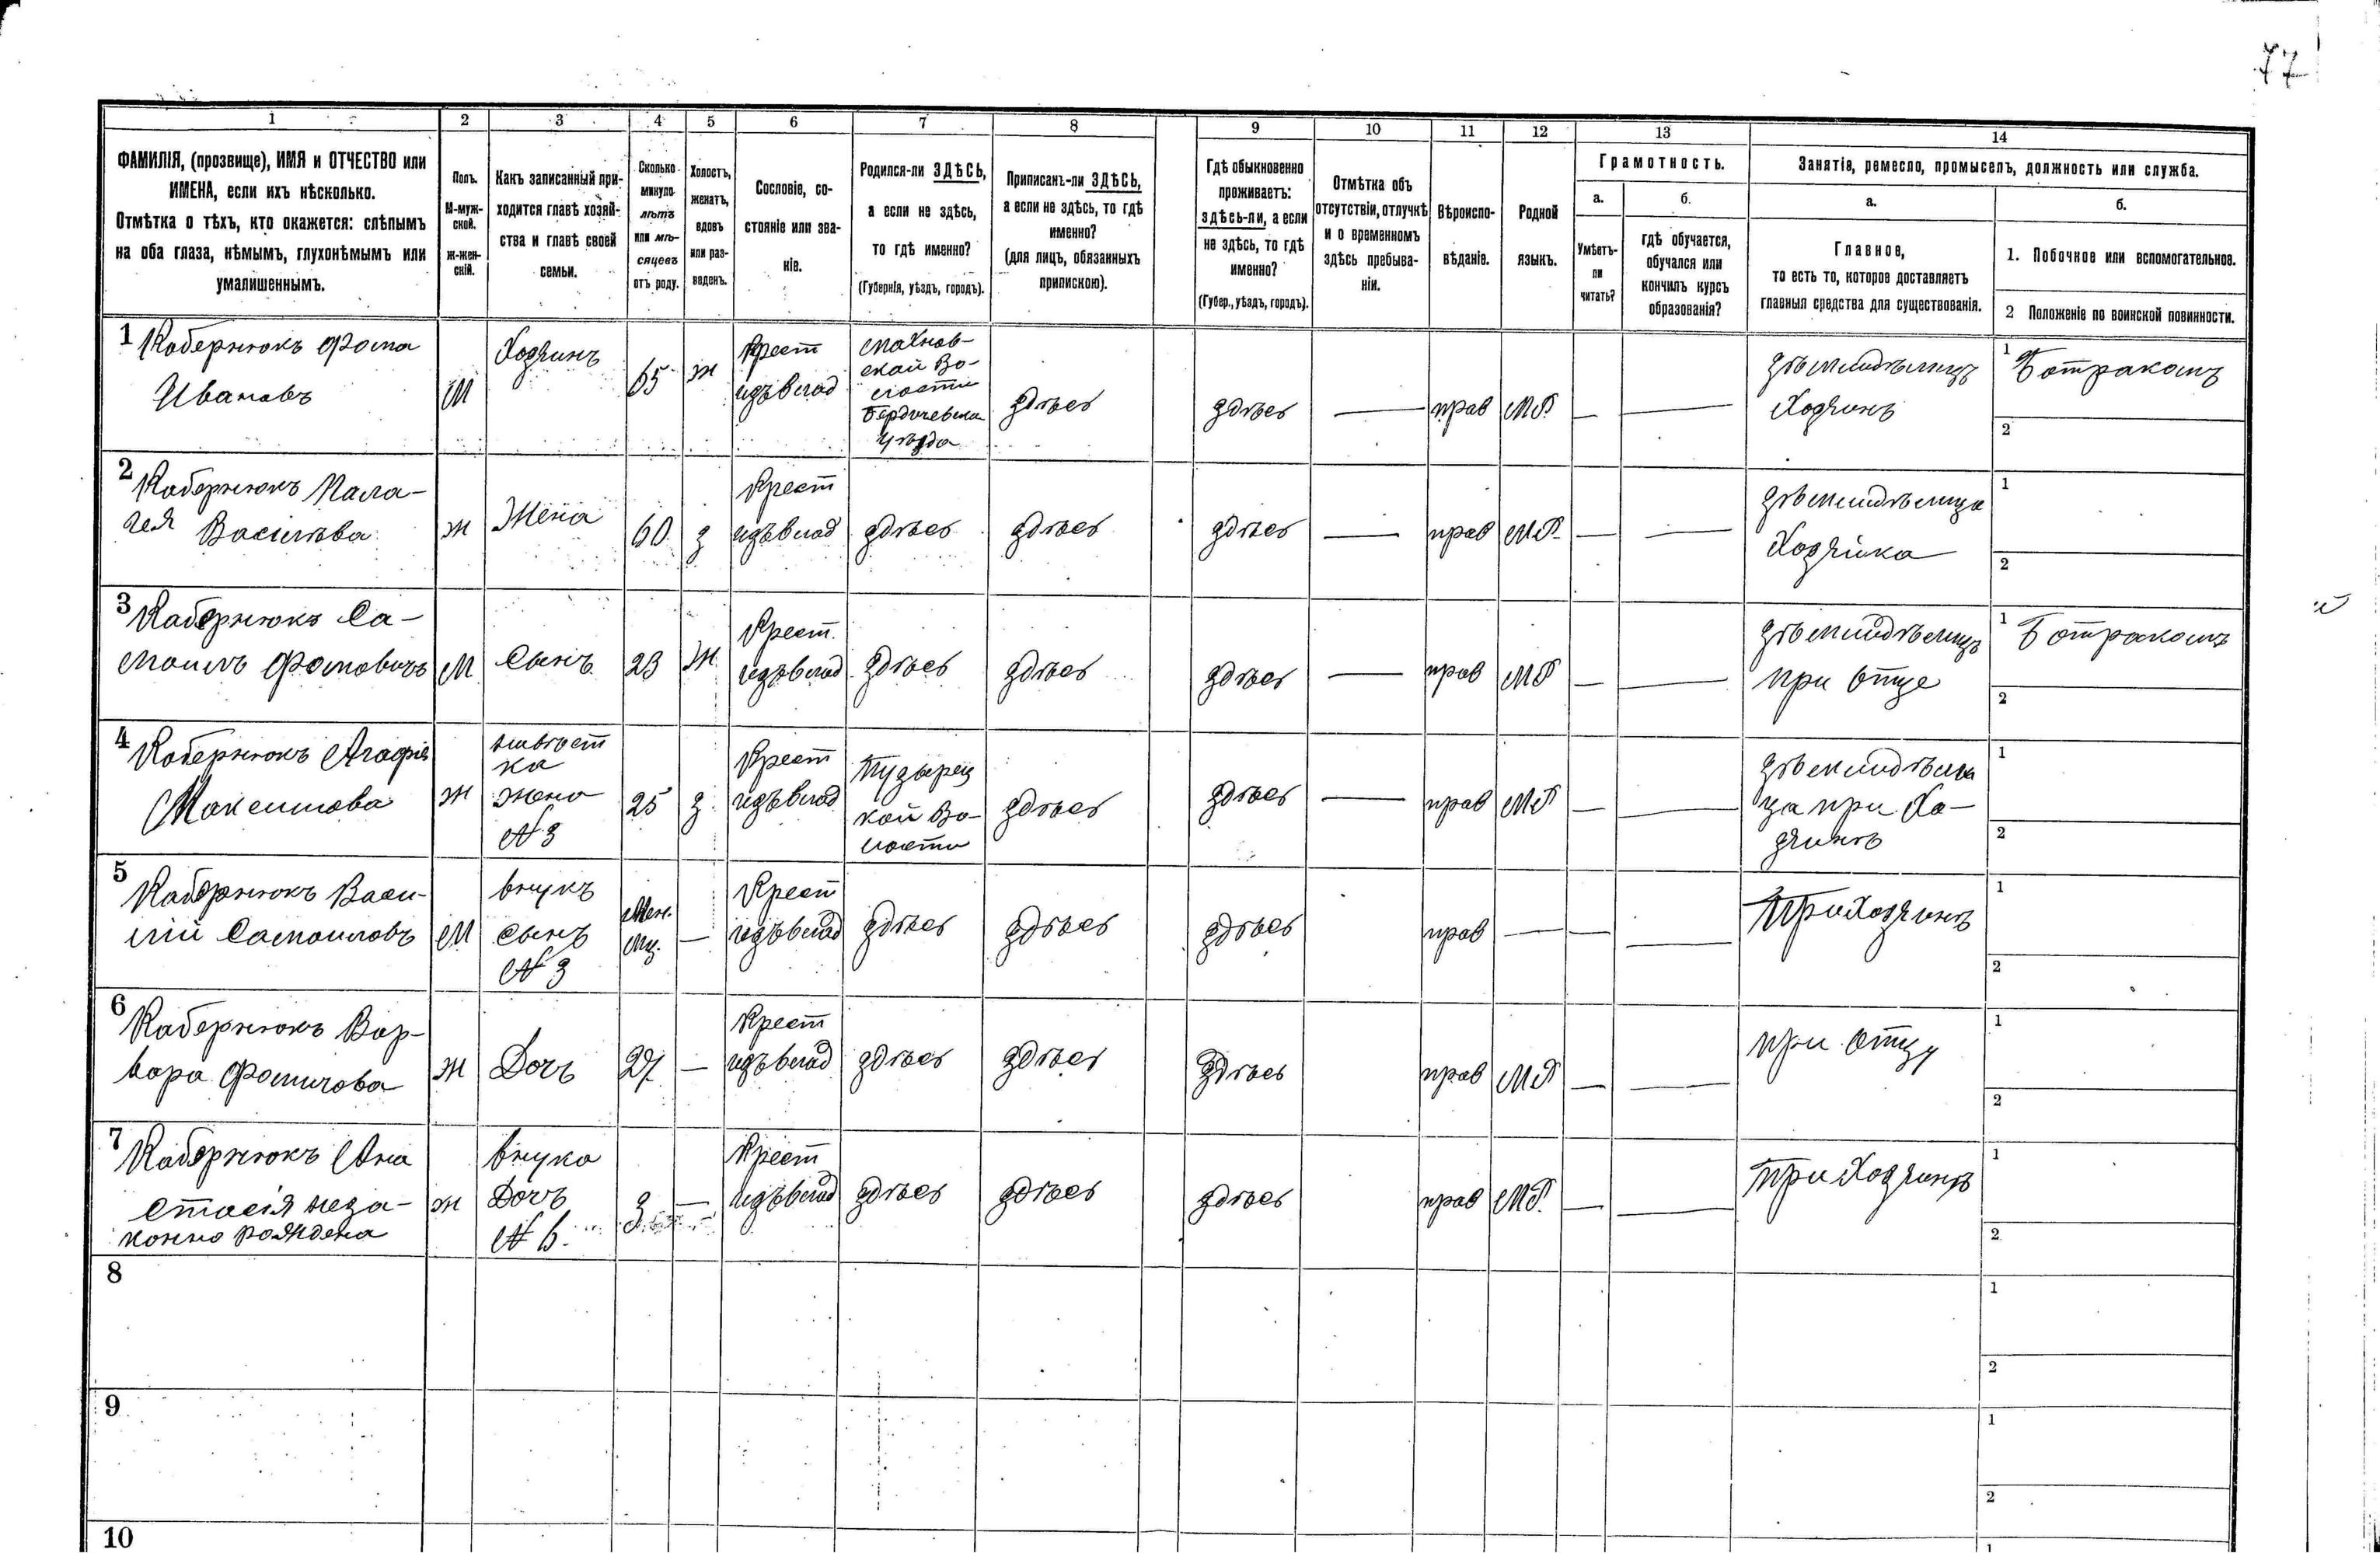 77
1 2 3 4 5 6 7 8 9 10 11 12 13 14
ФАМИЛІЯ, (прозвище), ИМЯ и ОТЧЕСТВО или
ИМЕНА, если ихъ нѣсколько.
Отмѣтка о тѣхъ, кто окажется: слѣпымъ
на оба глаза, нѣмымъ, глухонѣмымъ или
умалишеннымъ.
Полъ.
М-муж-
ской.
ж-жен-
скій.
Какъ записанный при-
ходится главѣ хозяй-
ства и главѣ своей
семьи.
Сколько
минуло
лѣтъ
или мѣ-
сяцевъ
отъ роду.
Холостъ,
женатъ,
вдовъ
или раз-
веденъ.
Сословіе, со-
стояніе или зва-
ніе.
Родился-ли ЗДѢСЬ,
а если не здѣсь,
то гдѣ именно?
(Губернія, уѣздъ, городъ).
Приписанъ-ли ЗДѢСЬ,
а если не здѣсь, то гдѣ
именно?
(для лицъ, обязанныхъ
припискою).
Гдѣ обыкновенно
проживаетъ:
здѣсь-ли, а если
не здѣсь, то гдѣ
именно?
(Губер., уѣздъ, городъ).
Отмѣтка объ
отсутствіи, отлучкѣ
и о временномъ
здѣсь пребыва-
ніи.
Вѣроиспо-
вѣданіе.
Родной
языкъ.
Грамотность.
а.
Умѣетъ-
ли
читать?
б.
гдѣ обучается,
обучался или
кончилъ курсъ
образованія?
Занятія, ремесло, промыселъ, должность или служба.
а.
Главное,
то есть то, которое доставляетъ
главныя средства для существованія.
б.
1. Побочное или вспомогательное.
2 Положеніе по воинской повинности.
1 Кабернюкъ Фома
Ивановъ
М
Хозяинъ
65
ж
Крест
издѣвлад
Махнов-
ской Во-
лости
Бердичевска
уѣзда
здѣсь
здѣсь
—
прав
МР.
—
—
земледѣлецъ
Хозяинъ
1 Ботракомъ
2
2 Кабернюкъ Пала-
гея Василѣва
ж
Жена
60
з
Крест
издѣвлад
здѣсь
здѣсь
здѣсь
—
прав
МР.
—
—
земледѣлица
Хозяйка
1
2
3 Кабернюкъ Са-
моилъ Фомовичъ
М
Сынъ
23
ж
Крест.
издѣвлад
здѣсь
здѣсь
здѣсь
—
прав
МР
—
—
земледѣлецъ
при отце
1 Ботракомъ
2
4 Кабернюкъ Агафія
Максимова
ж
невѣст
ка
жена
№ 3
25
з
Крест
издѣвлад
Пузырец
кой Во-
лости
здѣсь
здѣсь
—
прав
МР
—
—
земледѣли
ца при Хо-
зяинѣ
1
2
5 Кабернюкъ Васи-
лій Самоиловъ
М
внукъ
сынъ
№ 3
Мен.
мц.
—
Крест
издѣвлад
здѣсь
здѣсь
здѣсь
прав
—
—
—
При Хозяинѣ
1
2
6 Кабернюкъ Вар-
вара Фомичова
ж
Дочь
27
—
Крест
издѣвлад
здѣсь
здѣсь
здѣсь
прав
МР
—
—
при отцу
1
2
7 Кабернюкъ Ана
стасія неза-
конно рождена
ж
внука
Дочь
№ 6.
3
—
Крест
издѣвлад
здѣсь
здѣсь
здѣсь
прав
МР.
—
—
При Хозяинѣ
1
2
8
1
2
9
1
2
10
1